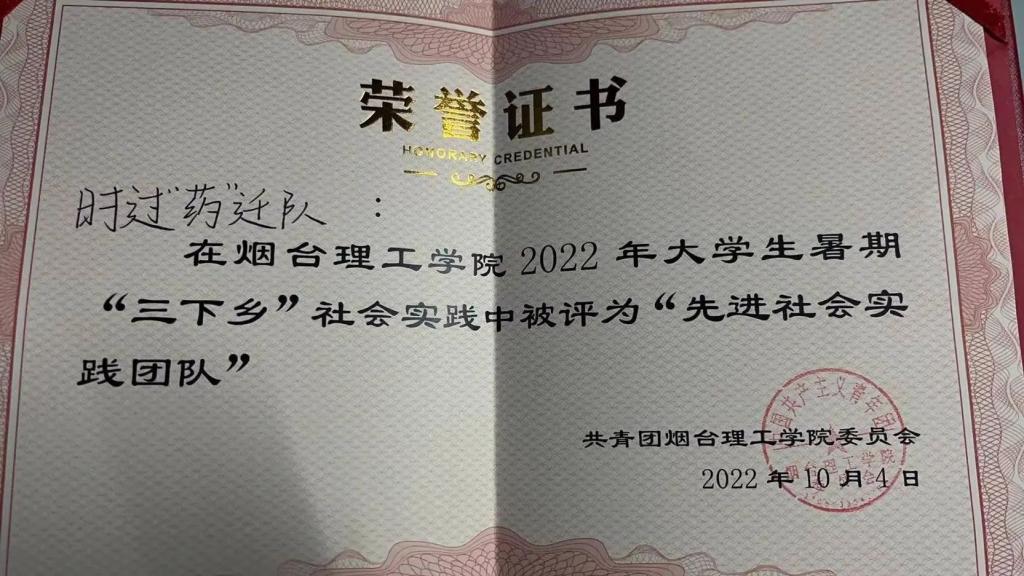 荣誉证书
HONORARY CREDENTIAL
时过“药”迁队 :
在烟台理工学院 2022 年大学生暑期
“三下乡”社会实践中被评为“先进社会实
践团队”
共青团烟台理工学院委员会
2022 年 10 月 4 日
国共产主义青年团
烟台理工学院